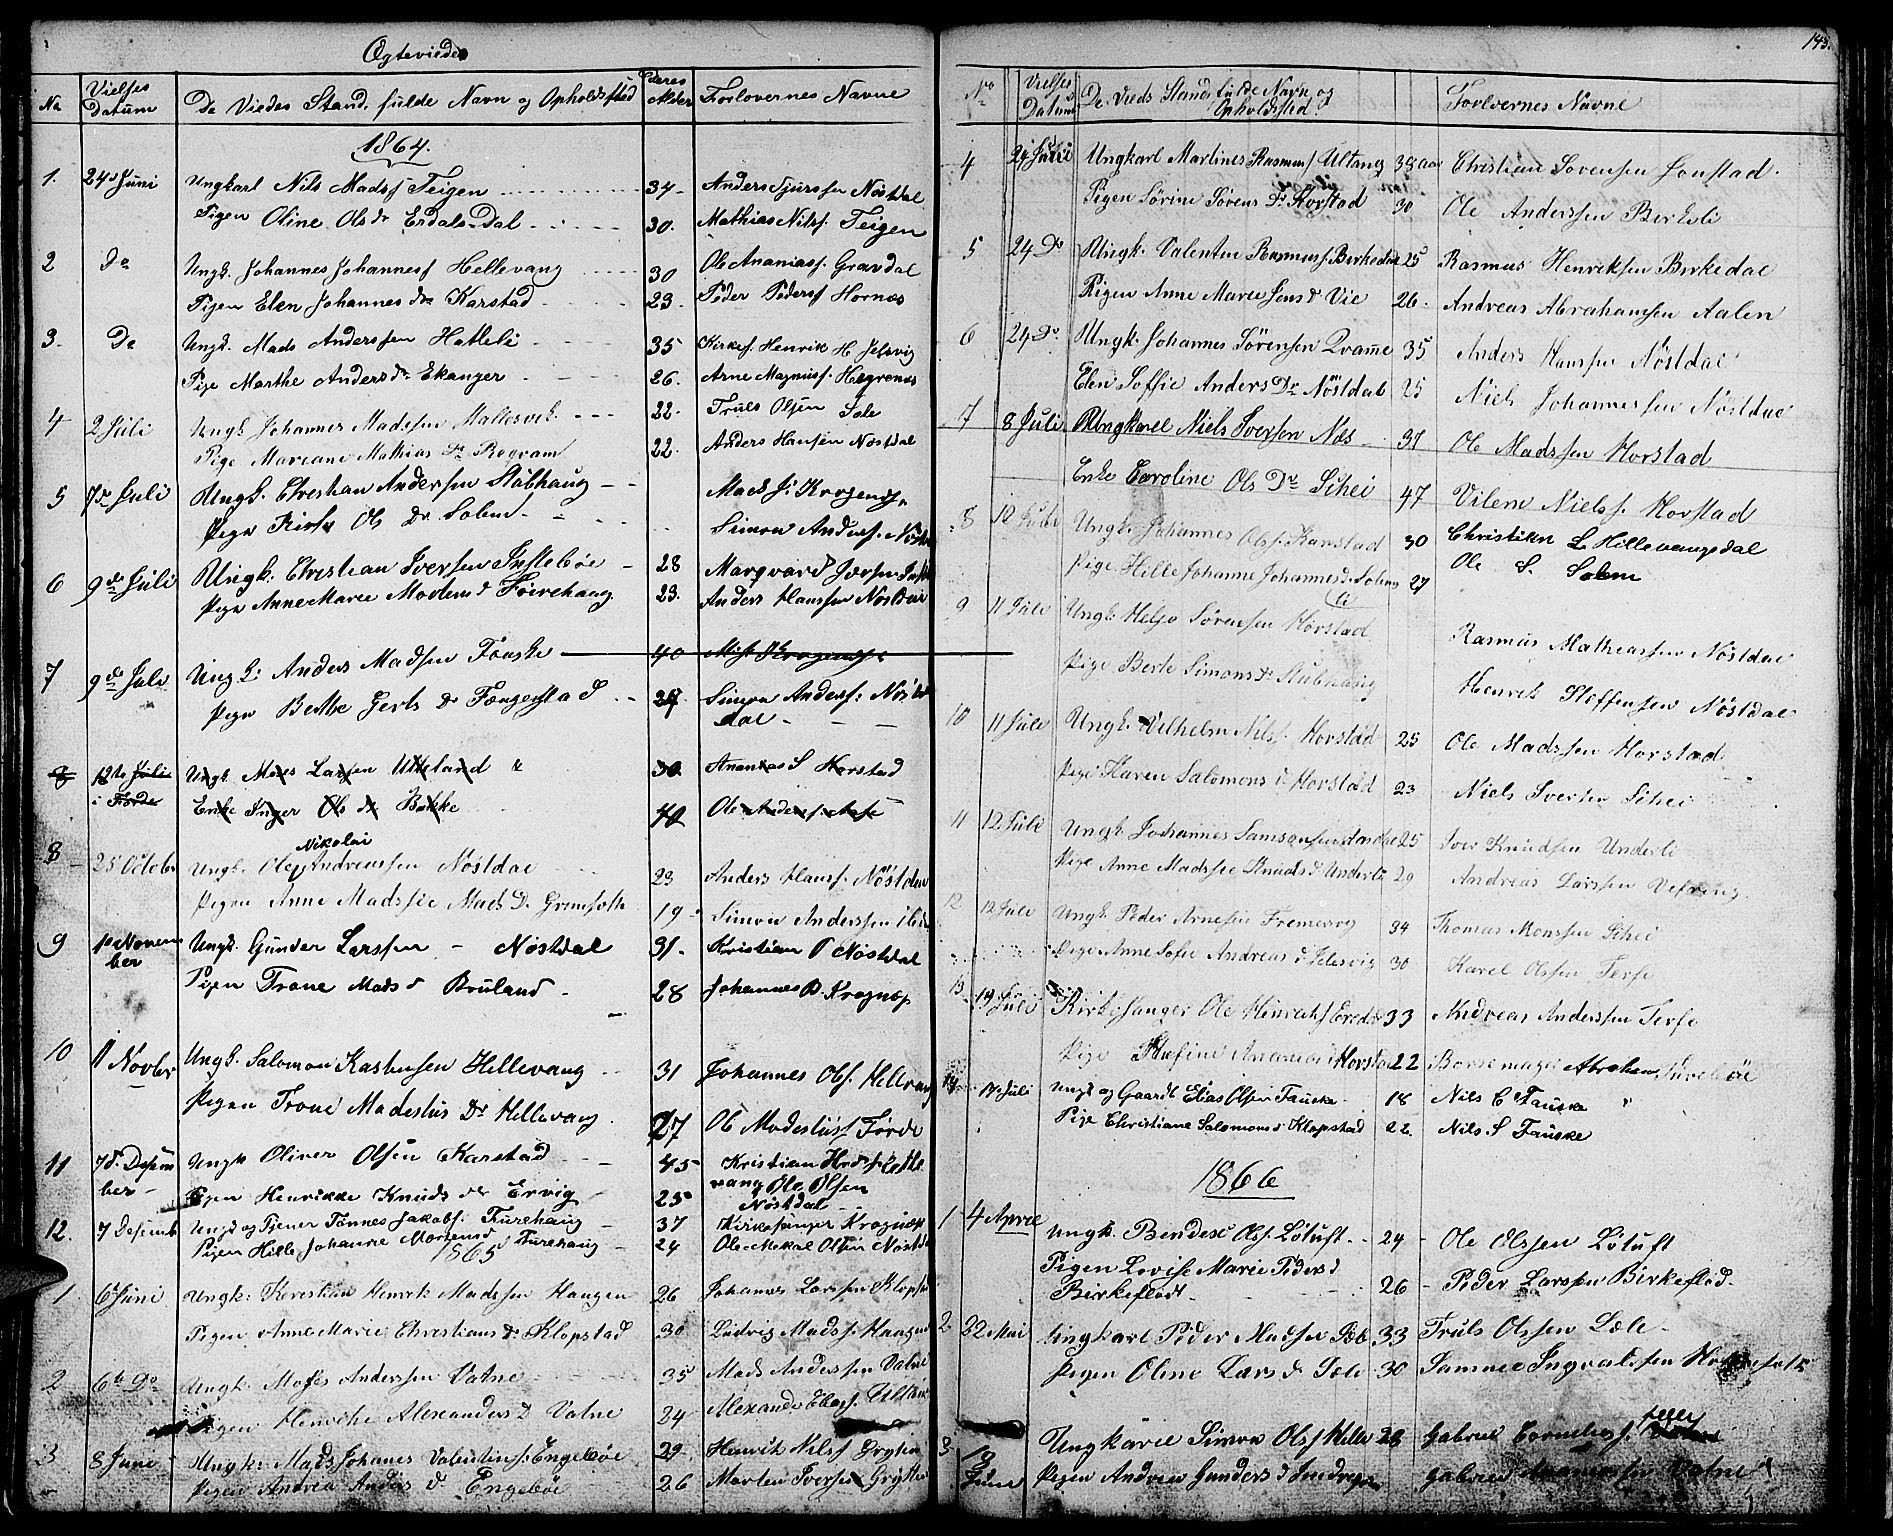 Ægteviede
No
Vielses Datum
De Viedes Stand, fulde Navn og Opholdssted
Deres Alder
Forlovernes Navne
1864.
1. 24d Juni Ungkarl Nils Madss Teigen 34- Anders Sjurssen Nøstdal
Pigen Oline Ols dr Erdals-Dal 30. Mathias Nilss. Teigen
2 Do Ungk. Johannes Johanness Hellevang 30 Ole Ananiass. Gravdal
Pigen Elen Johannes dr Karstad 23. Peder Pederss Hornæs
3. Do Ungk. Mads Anderssen Hatleli 35 Kirkes. Henrik H Jelsvig
Pige Marthe Anders dr Ekanger 26. Arne Magnuss. Hegrenæs
4 2 Juli Ungk Johannes Madssen Mallesvik 22. Truls Olsen Sæle
Pige Mariane Mathias Dr 22. Anders Hansen Nøstdal
5 7de Juli Ungk. Christian Andersen Stubhaug Mads J. Krogenes
Pige Ols Dr Solem Simon Anderss. Nøstd
6 9de Juli Ungk. Christian Iversen Instebøe 28 Marqvard Iversen
Pige Anne Marie Mortens d Fuirehaug 23. Anders Hanssen Nøstdal
7 9de Juli Ungk. Anders Madsen Fauske 40
Pige Berthe Gerts Dr Fængestad 27 Simon Anderss. Nøst
dal
8 12te Juli Ungk. Mons Larsen Utteland 30 Ananias S Horstad
i Førde Enke Inger Ols dr Bakke 40 Ole Anderss. Aase
Nikolai
8 25 October Ungk. Ole Andreassen Nøstdal 23 Anders Hanss. Nøstdal
Pigen Anne Madssie Mads D. Grimseth 19 Simon Anderssen
9 1 Novem Ungk. Gunder Larssen - Nøstdal 31- Kristian P Nøstdal
ber
Pigen Trone Mads d Bruland 28 Johannes B. Krognæs
10 11 Novbr Ungk. Salomon Rasmusen Hellevang 31 Johannes Ols. Hellevang
Pigen Trone Madestus Dr Hellevang 27 Ole Modestuss Førde
11 7d. Desem Ungk Oliver Olsen Karstad 45 Kristian
ber- Pigen Henrikke Knuds dr Ervig 25 vang Ole Olsen
Nøstdal
12. 7 Desemb Ungk og Tjener Tønnes Jakobs. Furehaug 37 Kirkesanger Krognæs
Pigen Hille Johanne Mortens d Furehaug 24 Ole Mekal Olsen Nøstd
1865
1 6 Juni Ungk: Kristian Henrik Madssen Haugen 26 Johannes Larssen Klopstad
Pigen Anne Marie Christians dr Klopstad 30 Ludvig Madss. Haugen
2 6te Do Ungk. Moses Anderssen Vatne 35 Mads Anderssen Vatne
Pigen Henrike Alexanders D Vatne 24 Alexander Eliass. Ultang
3 8 Juni Ungk: Mads Johanes Valentins: Engebøe 29. Henrik Nilss Grytten
Pigen Andrea Anders d Engebøe 26 Morten Iversen Grytten
143.
No
Vielses Datum
De Vieds Stand fulde Navn og Opholdssted
Forlvernes Navne
4 24 Juni Ungkarl Martines Rasmuss Ultang 38 Aar Christian Sørensen Jonstad.
Pigen Sørine Sørens Dr Horstad 30 Ole Anderssen Birkeli
5 24 Do Ungk. Valentin Rasmuss. Birkedal 25 Rasmus Henriksen Birkedal
Pigen Anne Marie Jens d Vie 26. Andreas Abrahamsen Aalen
6 24 Do. Ungk. Johannes Sörensen Qvame 35 Anders Hanssen Nöstdal
Elen Soffie Anders Dr Nöstdal 25 Niels Johannessen Nöstdal
7 8 Juli Ungkarl Niels Iversen Næs 31 Ole Madssen Horstad
Enke Caroline Ols Dr Schei 47 Vilem Nielss. Horstad
8 10 Juli Ungk. Johannes Olss. Karstad 30 Christian L Hillevangsdal
Pige Hille Johanne Johannes d. Solem 27 Ole S. Solem
9 11 Juli Ungk. Helje Sørensen Hørstad Rasmus Matheassen Nöstdal
Pige Berte Simons dr Stubhaug Henrik Steffensen Nöstdal
10 11 Juli Ungk. Vilhelm Nilss. Horstad 25 Ole Madssen Horstad
Pige Karen Salomons d Horstad 23 Niels Iversen Schei
11 12 Juli Ungk Johannes Samsonsen 25 Iver Knudsen Underli
Pige Anne Madssie Knuds d Underli 29 Andreas Larssen Vefring
12 12 Juli Ungk Peder Arnesen Fremersvg 34 Thomas Monssen Schei
Pige Anne Sofie Andreas d Jelesvig 30 Karel Olssen Terse
13 14 Juli Kirkesanger Ole Henrichs 33 Andreas Anderssen Terse
Pige Andreas d Horstad 22 Abraham
14 14 Juli Ungk og Gaardt Elias Olsen Fauske 18 Nils C Fauske
Pige Christiane Salomons d Klopstad 22. Nils S Fauske
1866
1 4 April Ungk. Bendex Olss. Løtuft 24 - Ole Olssen Løtuft
Pigen Lovise Marie Peders d
Birkeflodt 26 - Peder Larssen Birkeflod.
2 22 Mai Ungkarl Peder Madsen Sæle 33 Truls Olssen Sæle
Pigen Oline Lars d Sæle 30 Samuel Ingvalssen
3 18 Juni Ungkarl Simon Olss Helle 28 Gabriel Corneliuss. Helle
Pigen Andrea Gunders d Gabriel Ananiassen Vatne